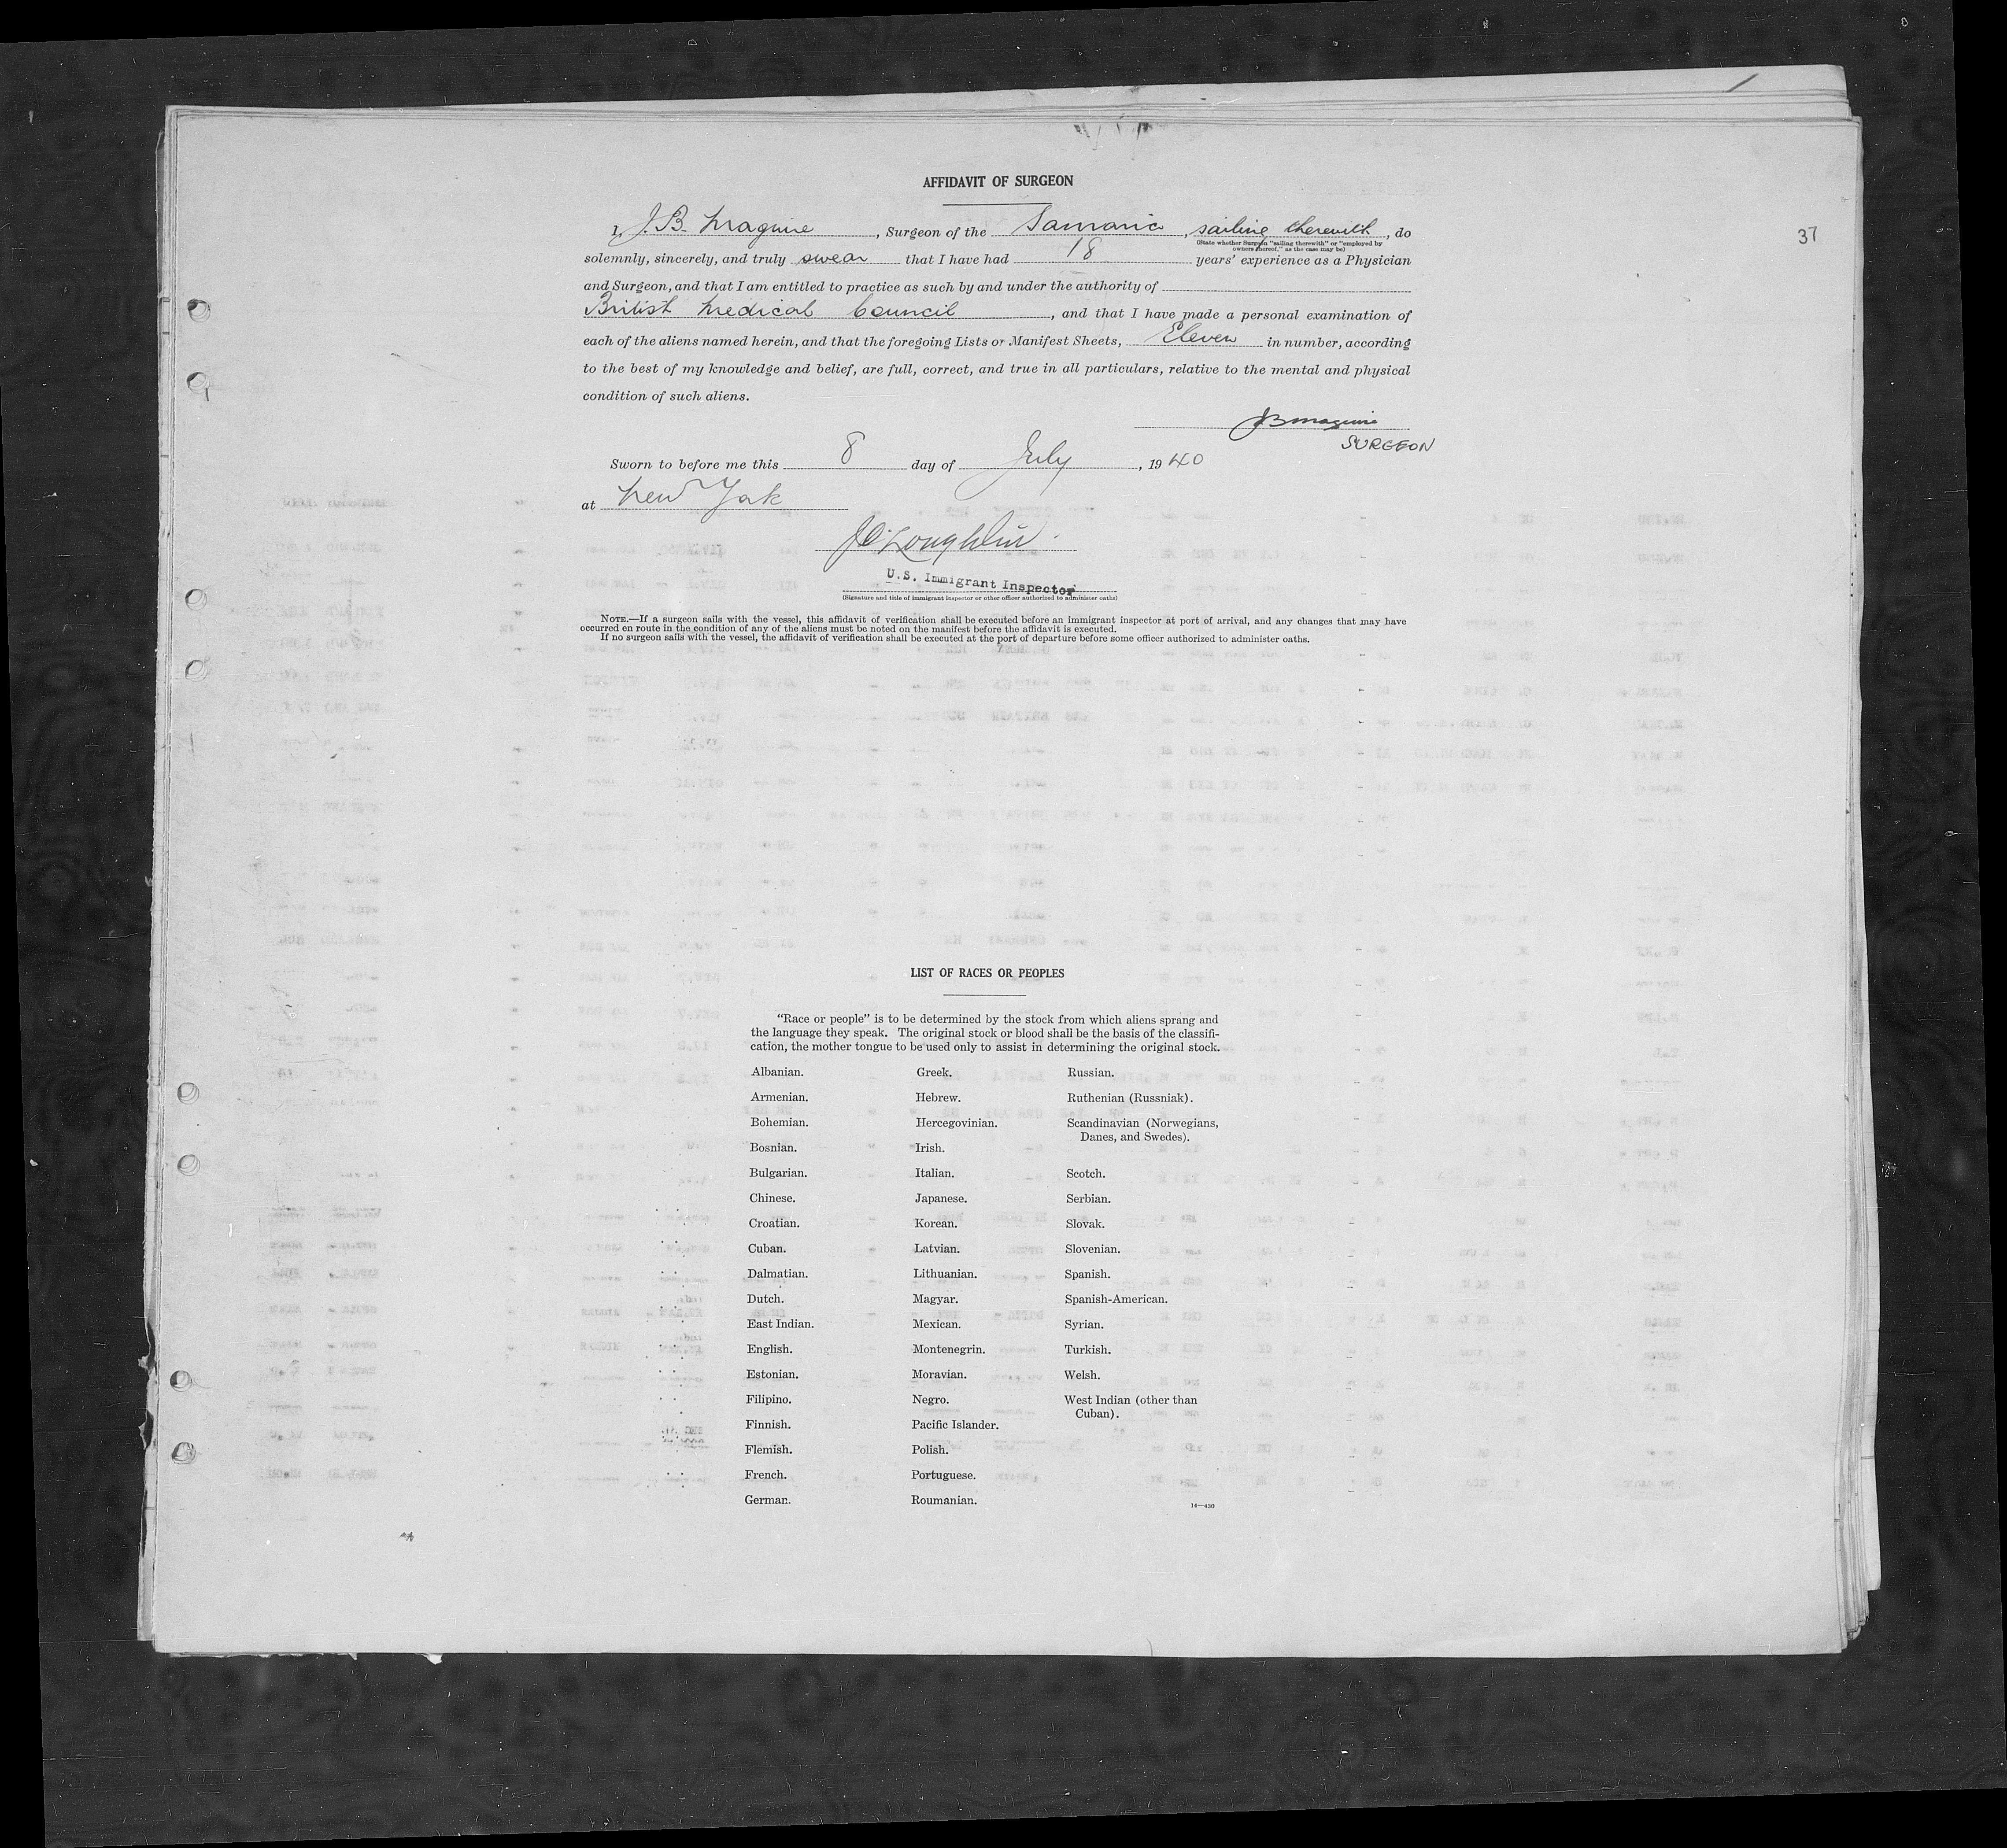 37
AFFIDAVIT OF SURGEON
I, J. B. Maguire, Surgeon of the Samaria, sailing therewith, do
(State whether Surgeon "sailing therewith" or "employed by
owners thereof," as the case may be)
solemnly, sincerely, and truly swear that I have had 18 years' experience as a Physician
and Surgeon, and that I am entitled to practice as such by and under the authority of
British Medical Council, and that I have made a personal examination of
each of the aliens named herein, and that the foregoing Lists or Manifest Sheets, Eleven in number, according
to the best of my knowledge and belief, are full, correct, and true in all particulars, relative to the mental and physical
condition of such aliens.
JBMaguire
SURGEON
Sworn to before me this 8 day of July, 1940
at New York
J O'Loughlin
U.S. Immigrant Inspector
(Signature and title of immigrant inspector or other officer authorized to administer oaths)
NOTE.—If a surgeon sails with the vessel, this affidavit of verification shall be executed before an immigrant inspector at port of arrival, and any changes that may have
occurred en route in the condition of any of the aliens must be noted on the manifest before the affidavit is executed.
If no surgeon sails with the vessel, the affidavit of verification shall be executed at the port of departure before some officer authorized to administer oaths.
LIST OF RACES OR PEOPLES
"Race or people" is to be determined by the stock from which aliens sprang and
the language they speak. The original stock or blood shall be the basis of the classifi-
cation, the mother tongue to be used only to assist in determining the original stock.
Albanian.
Armenian.
Bohemian.
Bosnian.
Bulgarian.
Chinese.
Croatian.
Cuban.
Dalmatian.
Dutch.
East Indian.
English.
Estonian.
Filipino.
Finnish.
Flemish.
French.
German.
Greek.
Hebrew.
Hercegovinian.
Irish.
Italian.
Japanese.
Korean.
Latvian.
Lithuanian.
Magyar.
Mexican.
Montenegrin.
Moravian.
Negro.
Pacific Islander.
Polish.
Portuguese.
Roumanian.
Russian.
Ruthenian (Russniak).
Scandinavian (Norwegians,
Danes, and Swedes).
Scotch.
Serbian.
Slovak.
Slovenian.
Spanish.
Spanish-American.
Syrian.
Turkish.
Welsh.
West Indian (other than
Cuban).
14—430